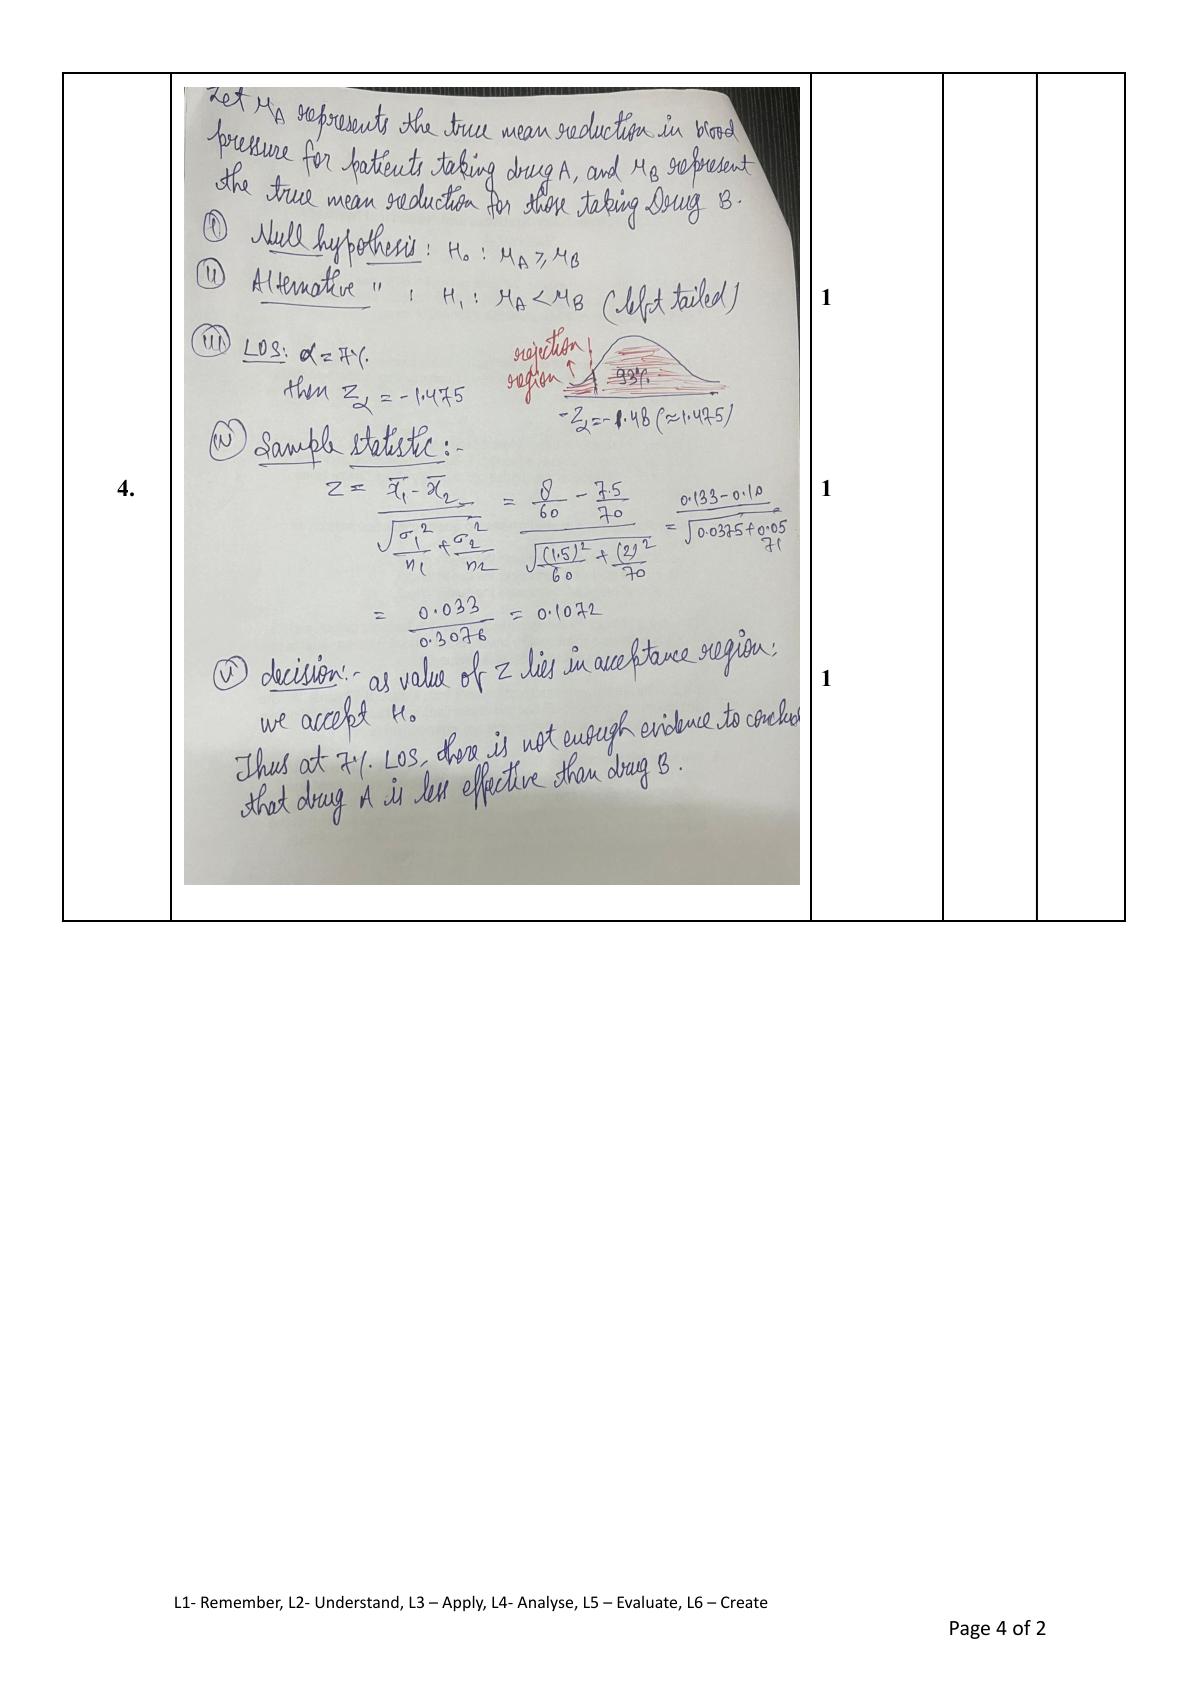 Let μA represents the true mean reduction in blood
pressure for patients taking drug A, and μB represent
the true mean reduction for those taking Drug B.
(i) Null hypothesis : H₀ : μA ≥ μB
(ii) Alternative " : H₁ : μA < μB (left tailed)
1
(iii) LOS: α = 7%.
rejection
region ↑
93%
then Zα = -1.475
-Zα = -1.48 (≈1.475)
(iv) Sample statistic :-
4.
Z = (x̄₁ - x̄₂) / √(σ₁²/n₁ + σ₂²/n₂) = (8/60 - 7.5/70) / √((1.5)²/60 + (2)²/70) = (0.133 - 0.10) / √(0.0375 + 0.0571)
1
= 0.033/0.3076 = 0.1072
(v) decision:- as value of Z lies in acceptance region;
1
we accept H₀
Thus at 7% LOS, there is not enough evidence to conclud
that drug A is less effective than drug B.
L1- Remember, L2- Understand, L3 – Apply, L4- Analyse, L5 – Evaluate, L6 – Create
Page 4 of 2